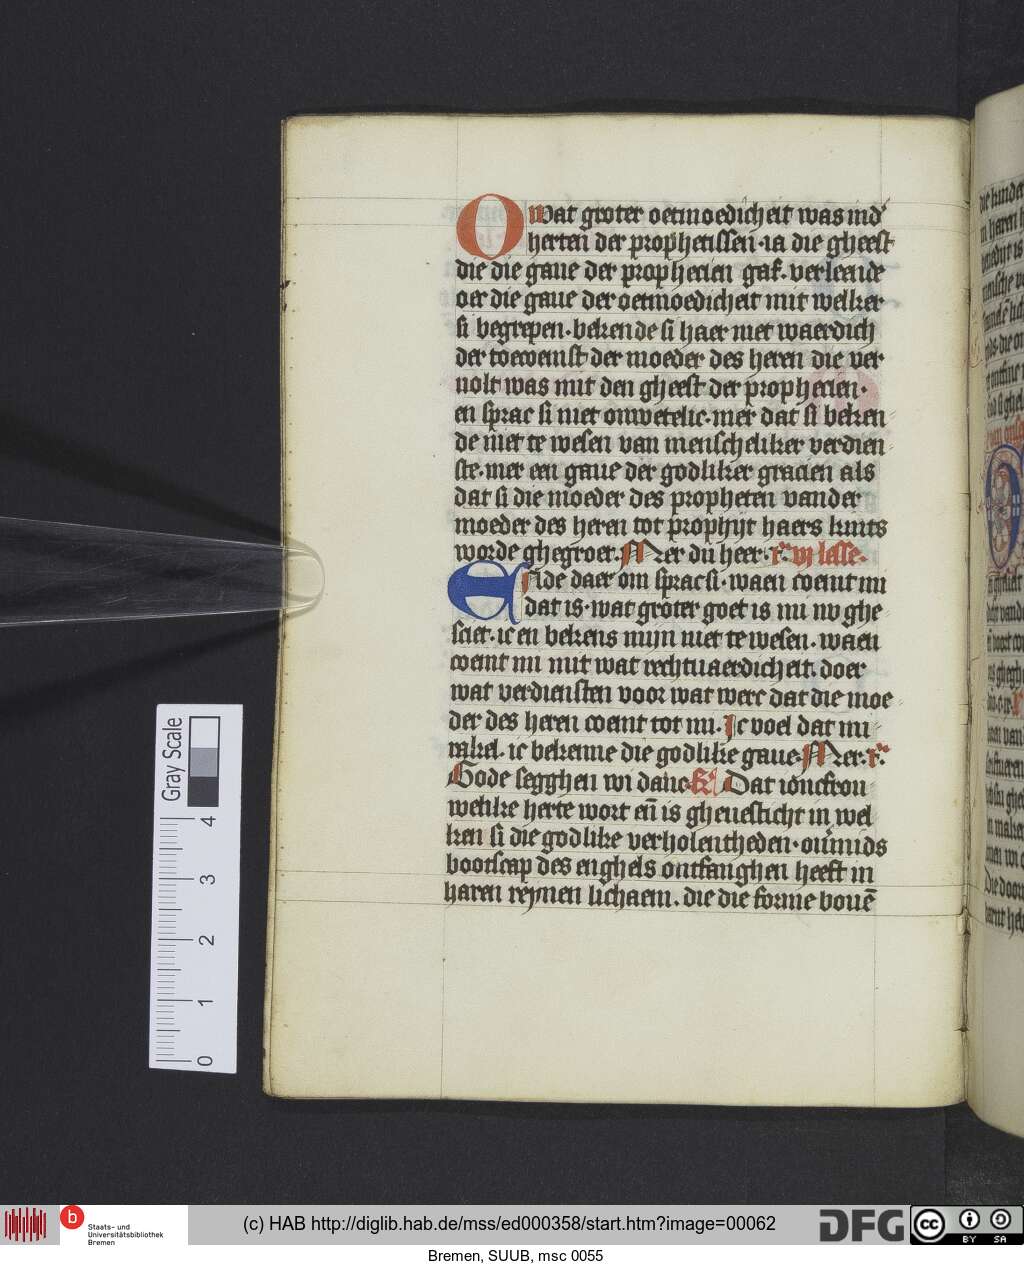 O wat groter oetmoedicheit was ind'
herten der prophetissen · ia die gheest
die die gaue der prophecien gaf. verleende
oer die gaue der oetmoedicheit mit welker
si begrepen · bekende si haer niet waerdich
der toecoemst der moeder des heren die ver
uolt was mit den gheest der prophecien ·
en sprac si niet onwetelic · mer dat si beken
de niet te wesen van menscheliker verdien
ste · mer een gaue der godliker gracien als
dat si die moeder des propheten vander
moeder des heren tot prophijt haers kints
worde ghegroet. Mer du heer · r' vj lesse ·
Ende daer om sprac si · waen coemt mi
dat is · wat groter goet is mi nv ghe
sciet · ic en bekens mijn niet te wesen · waen
coemt mi mit wat rechtuaerdicheit. doer
wat verdiensten voor wat werc dat die moe
der des heren coemt tot mi. Ic voel dat mi
rakel. ic bekenne die godlike gaue. Mer. r'
Gode segghen wi danc. Dat ioncfrou
welike herte wort en̄ is gheuesticht in wel
ken si die godlike verholentheden · ouermids
bootscap des enghels ontfanghen heeft in
haren reynen lichaem. die die forme bouē
Gray Scale
4
3
2
1
0
b
Staats- und
Universitätsbibliothek
Bremen
(c) HAB http://diglib.hab.de/mss/ed000358/start.htm?image=00062
DFG
cc
BY SA
Bremen, SUUB, msc 0055